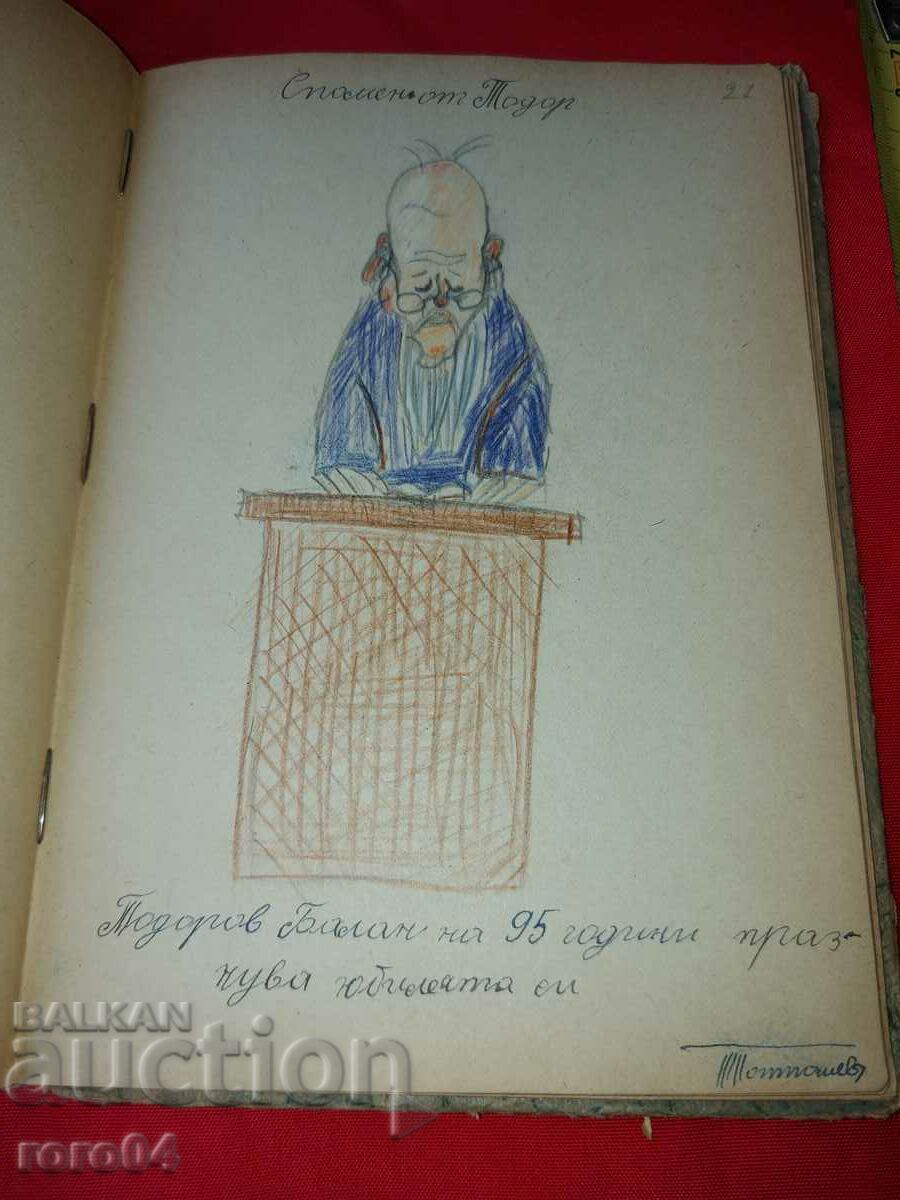 Спомен от Тодор
21
Тодоров Балан на 95 години праз-
нува юбилеята си
BALKAN
auction
roro04